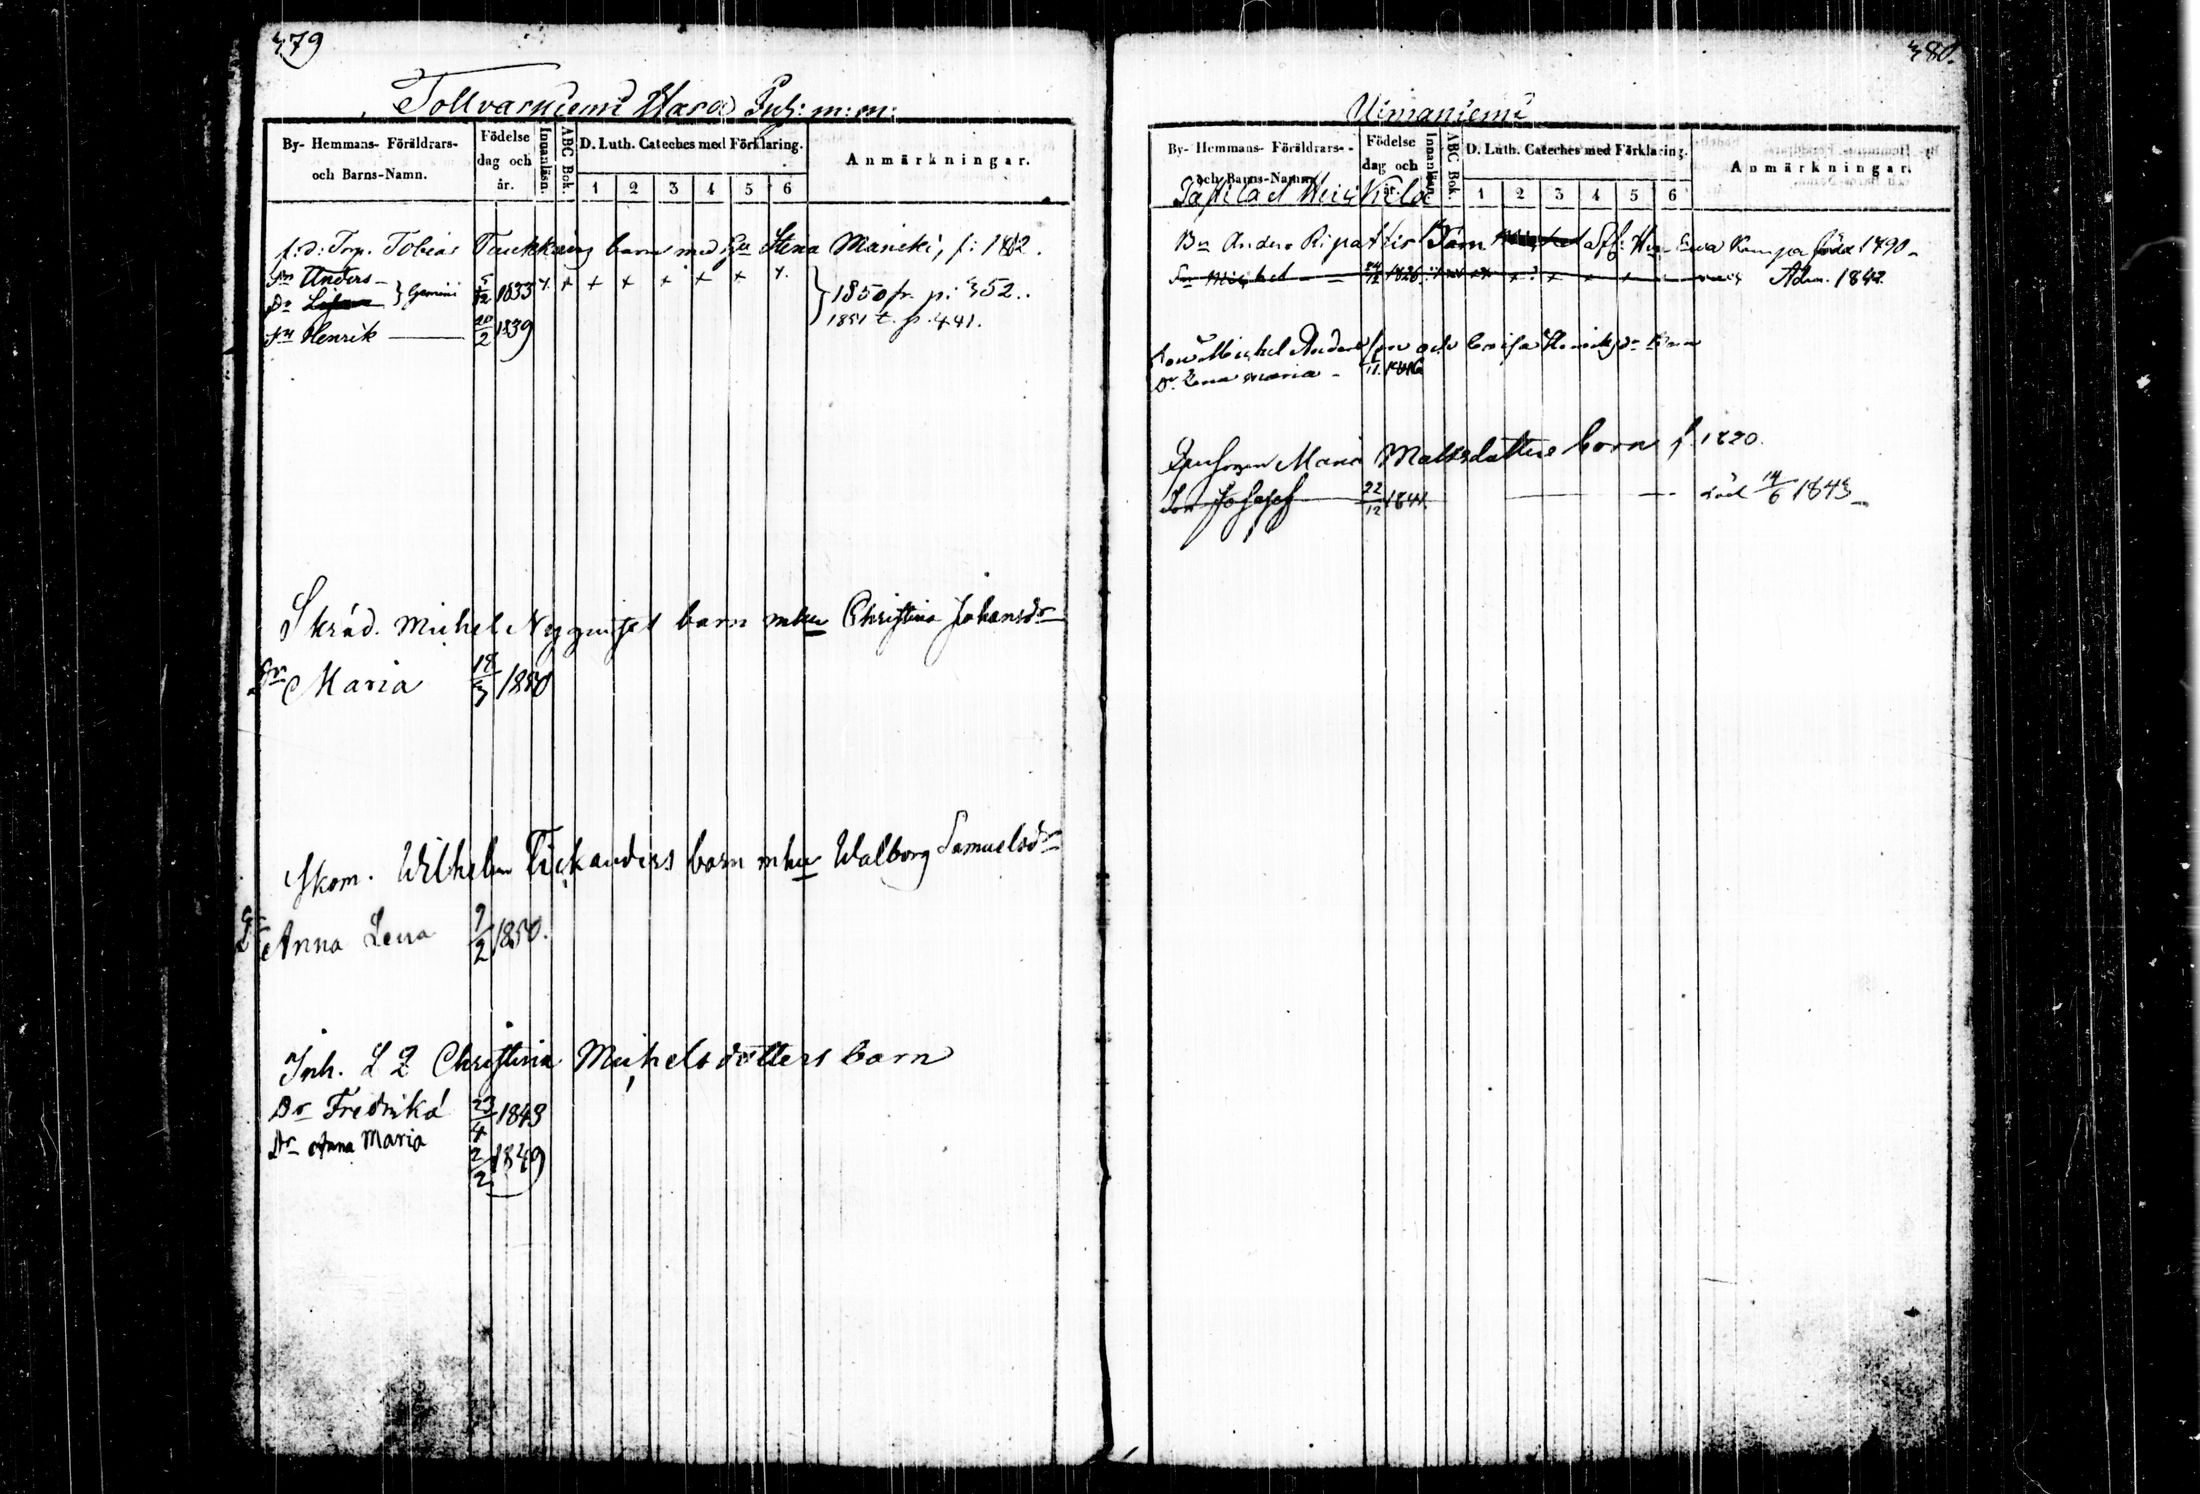 379
Tollvarniemi Wara Inh: m: m:
By- Hemmans- Föräldrars- och Barns-Namn.
Födelse dag och år.
Innanläsn.
ABC Bok.
D. Luth. Cateches med Förklaring.
1 2 3 4 5 6
Anmärkningar.
f. d: Trp. Tobias barn med Hu Stina f: 1812.
Sn Anders } Gemini 5/12 1833 x x x x x x x x } 1850 fr. p: 352.
Dr
Sn Henrik 20/2 1839 1851 t. p. 441.
Skräd. Michel barn m hu Christina Johansdr
Dr Maria 18/3 1850
Skom. Wilhelm Tickanders barn m hu Walborg Samuelsdr
Dr Anna Lena 9/2 1850.
Inh. L Q Christina Michelsdotters barn
Dr Fredrika 23/4 1843
Dr Anna Maria 2/2 1849
380.
Uimaniemi
By- Hemmans- Föräldrars- och Barns-Namn.
Födelse dag och år.
Innanläsn.
ABC Bok.
D. Luth. Cateches med Förklaring.
1 2 3 4 5 6
Anmärkningar.
Heickilä
Bn Anders Ripattis Barn Hu Ewa född 1790
Sn Michel 1826 Adm. 1842.
Michel Andersson och Henriksdr
Dr Lena Maria 11 1846
Maria Matsdotters barn f. 1820.
Son Josef 22/12 1841. död 14/6 1843